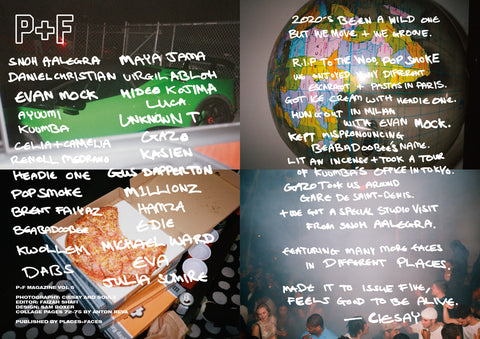 P+F
SNOH AALEGRA
DANIEL CHRISTIAN
EVAN MOCK
AYUUMI
KUUMBA
CELIA + CAMELIA
RENELL MEDRANO
HEADIE ONE
POP SMOKE
BRENT FAIYAZ
BEABADOOBEE
KWOLLEM
DABS
MAYA JAMA
VIRGIL ABLOH
HIDEO KOJIMA
LUCA
UNKNOWN T
GAZO
KASIEN
GUS DAPPERTON
MILLIONZ
HAMZA
EDIE
MICHAEL WARD
EVA
JULIA SUMIRE
P+F MAGAZINE VOL 5
PHOTOGRAPHY: CIESAY AND SOULZ
EDITOR: FAIZAH SHAFI
DESIGN: SAM BOXER
COLLAGE PAGES 72-76 BY ANTON REVA
PUBLISHED BY PLACES+FACES
2020'S BEEN A WILD ONE
BUT WE MOVE + WE GROOVE.
R.I.P TO THE WOO, POP SMOKE
WE ENJOYED VERY DIFFERENT
ESCARGOT + PASTAS IN PARIS.
GOT ICE CREAM WITH HEADIE ONE.
HUNG OUT IN MILAN
WITH EVAN MOCK.
KEPT MISPRONOUNCING
BEABADOOBEE'S NAME.
LIT AN INCENSE + TOOK A TOUR
OF KUUMBA'S OFFICE IN TOKYO.
GAZO TOOK US AROUND
GARE DE SAINT-DENIS.
+ WE GOT A SPECIAL STUDIO VISIT
FROM SNOH AALEGRA.
FEATURING MANY MORE FACES
IN DIFFERENT PLACES.
MADE IT TO ISSUE FIVE,
FEELS GOOD TO BE ALIVE.
— CIESAY